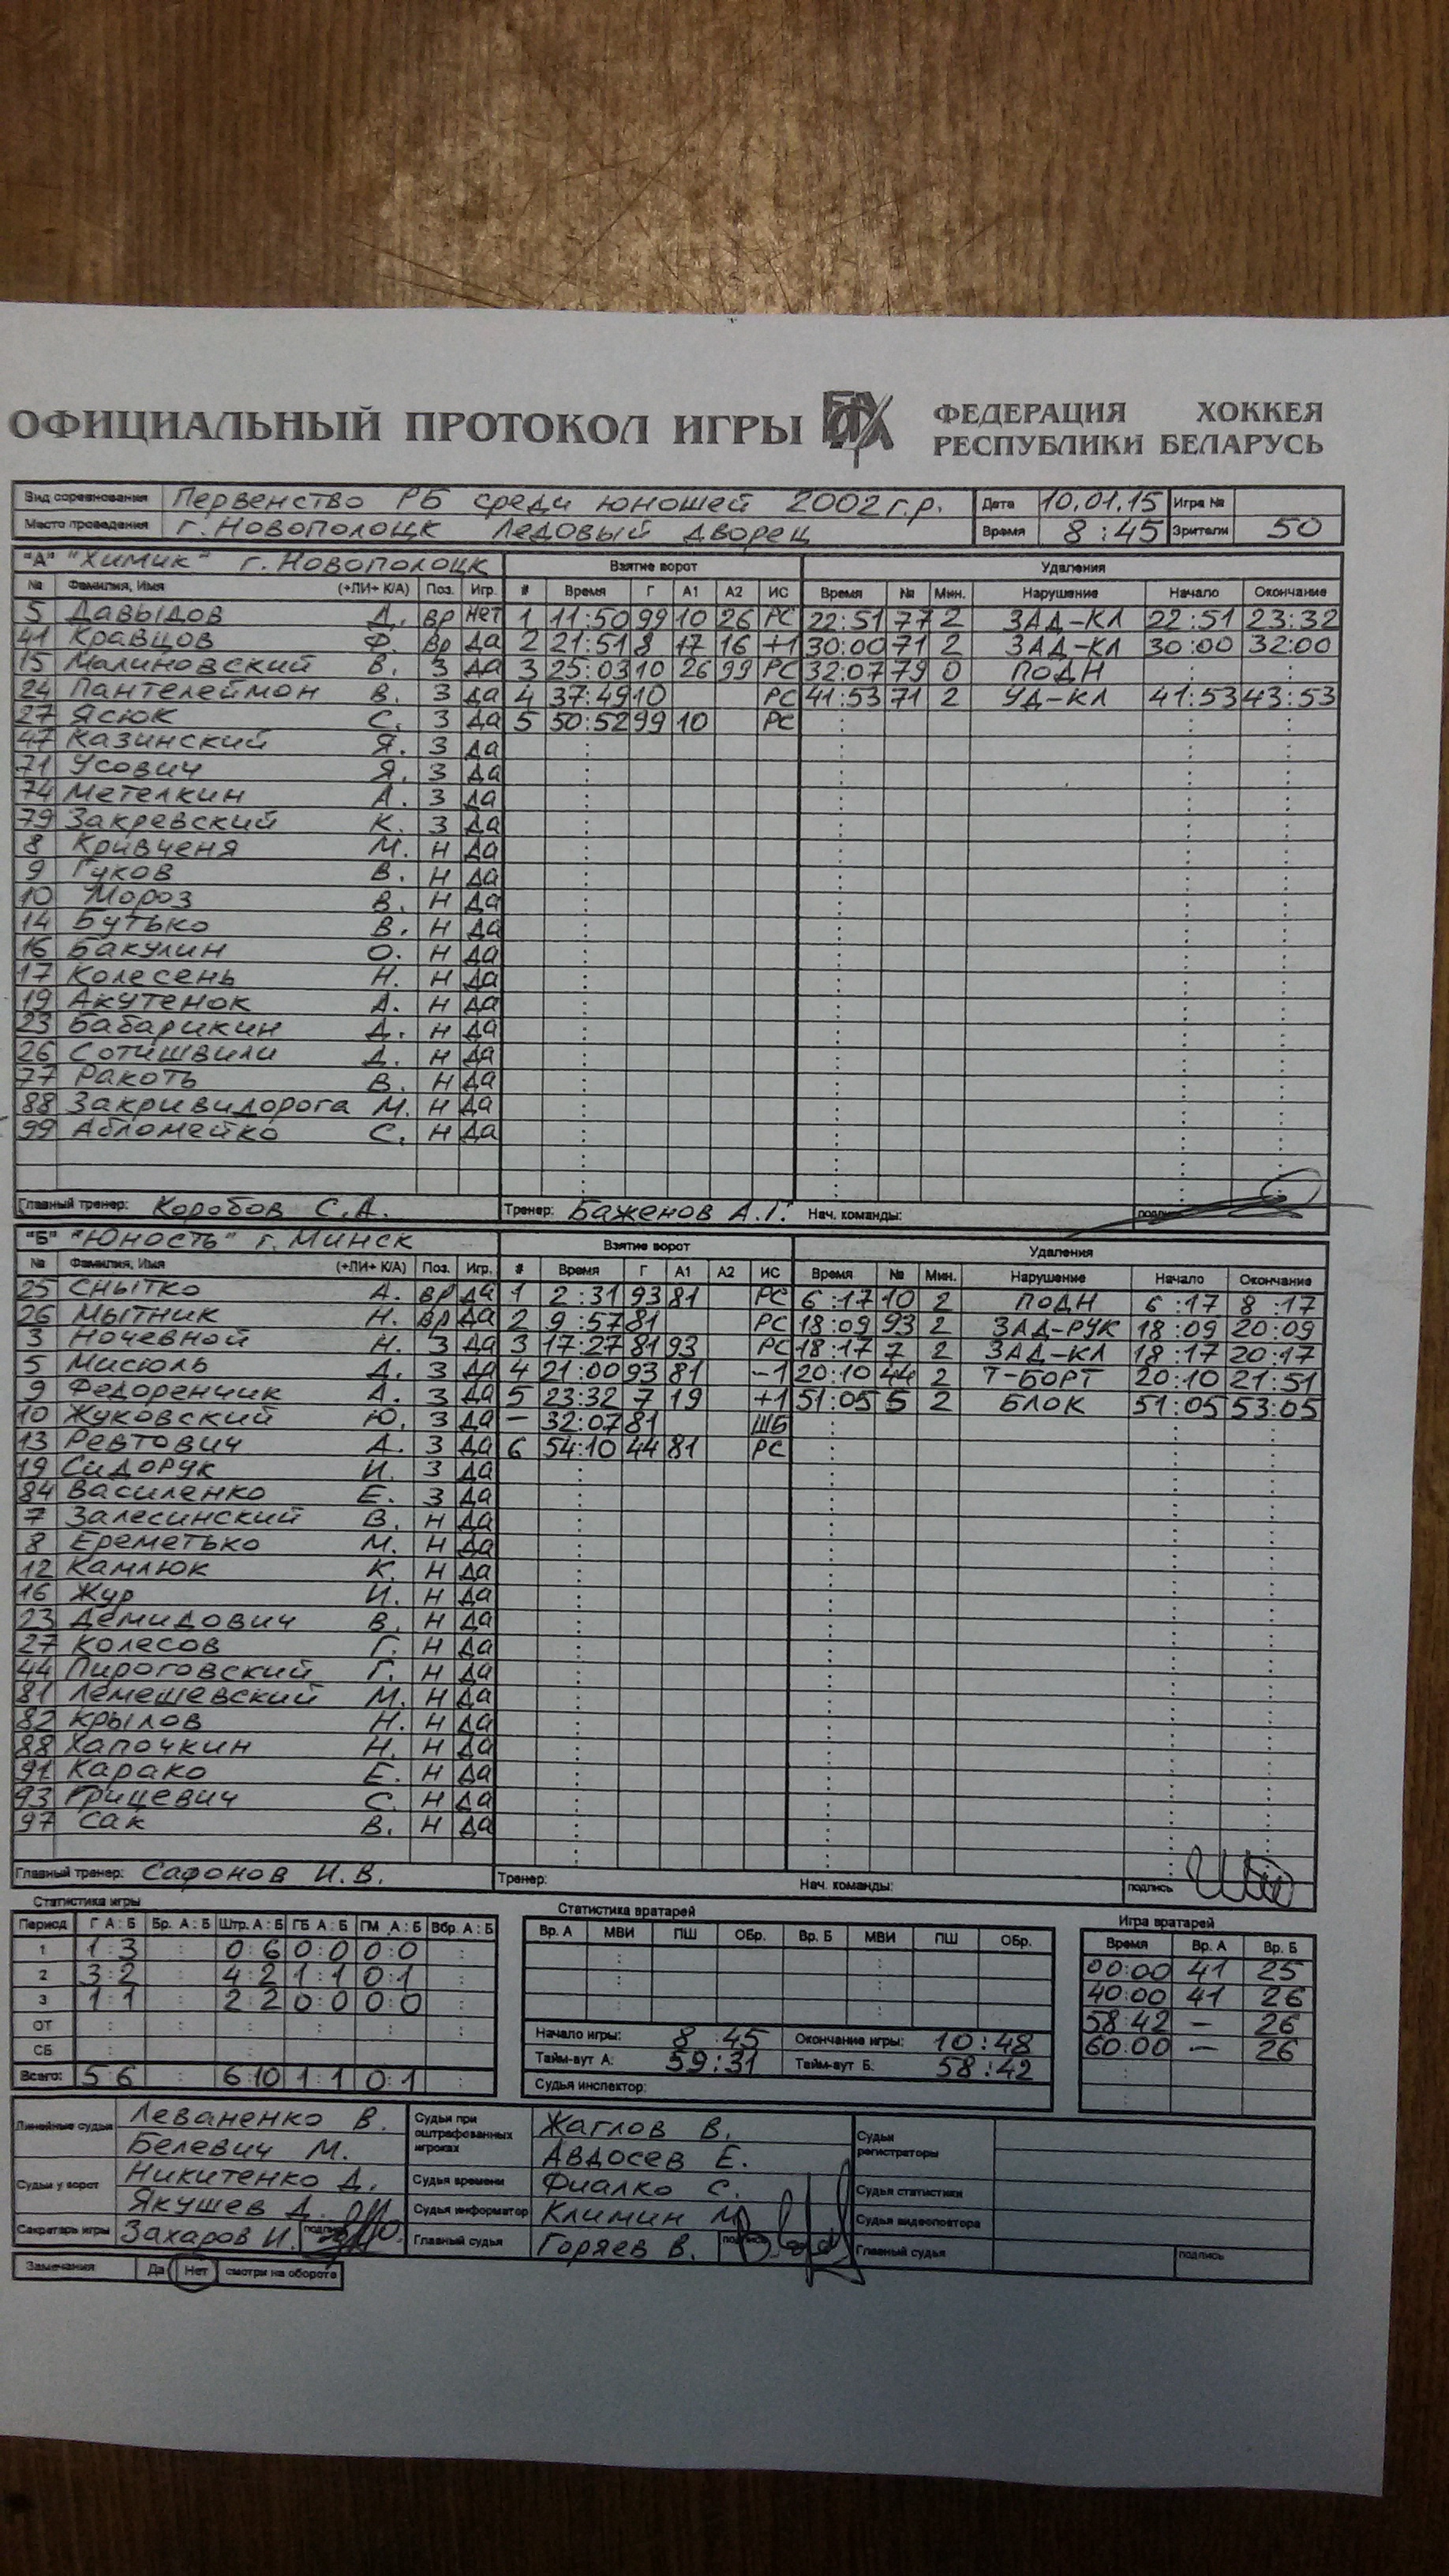 ОФИЦИАЛЬНЫЙ ПРОТОКОЛ ИГРЫ ФЕДЕРАЦИЯ ХОККЕЯ
РЕСПУБЛИКИ БЕЛАРУСЬ
Вид соревнования Первенство РБ среди юношей 2002 г.р. Дата 10.01.15 Игра №
Место проведения г. Новополоцк Ледовый дворец Время 8:45 Зрители 50
"А" "Химик" г. Новополоцк Взятие ворот Удаления
№ Фамилия, Имя (+ЛИ+ К/А) Поз. Игр. # Время Г А1 А2 ИС Время № Мин. Нарушение Начало Окончание
5 Давыдов Д. вр нет 1 11:50 99 10 26 РС 22:51 77 2 ЗАД-КЛ 22:51 23:32
41 Кравцов Ф. Вр да 2 21:51 8 17 16 +1 30:00 71 2 ЗАД-КЛ 30:00 32:00
15 Малиновский В. З да 3 25:03 10 26 99 РС 32:07 79 0 ПОДН
24 Пантелеймон В. З да 4 37:49 10 РС 41:53 71 2 УД-КЛ 41:53 43:53
27 Ясюк С. З да 5 50:52 99 10 РС
47 Казинский Я. З да
71 Усович Я. З да
74 Метелкин А. З да
79 Закревский К. З да
8 Кривченя М. Н да
9 Гуков В. Н да
10 Мороз В. Н да
14 Бутько В. Н да
16 Бакулин О. Н да
17 Колесень Н. Н да
19 Акутенок А. Н да
23 Бабарикин Д. Н да
26 Сотишвили Д. Н да
77 Ракоть В. Н да
88 Закривидорога М. Н да
99 Абломейко С. Н да
Главный тренер: Коробов С.А. Тренер: Баженов А.Г. Нач. команды: подпись
"Б" "Юность" г. Минск Взятие ворот Удаления
№ Фамилия, Имя (+ЛИ+ К/А) Поз. Игр. # Время Г А1 А2 ИС Время № Мин. Нарушение Начало Окончание
25 Снытко А. вр да 1 2:31 93 81 РС 6:17 10 2 ПОДН 6:17 8:17
26 Мытник Н. вр да 2 9:57 81 РС 18:09 93 2 ЗАД-РУК 18:09 20:09
3 Ночевной Н. З да 3 17:27 81 93 РС 18:17 7 2 ЗАД-КЛ 18:17 20:17
5 Мисюль Д. З да 4 21:00 93 81 -1 20:10 44 2 Т-БОРТ 20:10 21:51
9 Федоренчик А. З да 5 23:32 7 19 +1 51:05 5 2 БЛОК 51:05 53:05
10 Жуковский Ю. З да - 32:07 81 ШБ
13 Ревтович А. З да 6 54:10 44 81 РС
19 Сидорук И. З да
84 Василенко Е. З да
7 Залесинский В. Н да
8 Ереметько М. Н да
12 Камлюк К. Н да
16 Жур И. Н да
23 Демидович В. Н да
27 Колесов Г. Н да
44 Пироговский Г. Н да
81 Лемешевский М. Н да
82 Крылов Н. Н да
88 Хапочкин Н. Н да
91 Карако Е. Н да
93 Грицевич С. Н да
97 Сак В. Н да
Главный тренер: Сафонов И.В. Тренер: Нач. команды: подпись
Статистика игры Статистика вратарей Игра вратарей
Период Г А : Б Бр. А : Б Штр. А : Б ГБ А : Б ГМ А : Б Вбр. А : Б Вр. А МВИ ПШ ОБр. Вр. Б МВИ ПШ ОБр. Время Вр. А Вр. Б
1 1:3 0:6 0:0 0:0 00:00 41 25
2 3:2 4:2 1:1 0:1 40:00 41 26
3 1:1 2:2 0:0 0:0 58:42 - 26
ОТ Начало игры: 8:45 Окончание игры: 10:48 60:00 - 26
СБ Тайм-аут А: 59:31 Тайм-аут Б: 58:42
Всего: 5:6 6:10 1:1 0:1 Судья инспектор:
Линейные судьи Леваненко В. Судьи при оштрафованных игроках Жаглов В. Судьи регистраторы
Белевич М. Авдосев Е.
Судьи у ворот Никитенко Д. Судья времени Фиалко С. Судья статистики
Якушев Д. Судья информатор Климин М. Судья видеоповтора
Секретарь игры Захаров И. подпись Главный судья Горяев В. подпись Главный судья подпись
Замечания Да Нет смотри на обороте